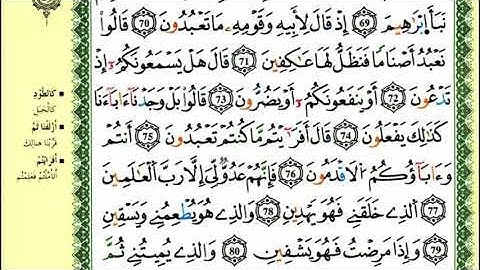 نَبَأَ إِبْرَٰهِيمَ ﴿69﴾ إِذْ قَالَ لِأَبِيهِ وَقَوْمِهِۦ مَا تَعْبُدُونَ ﴿70﴾ قَالُوا۟
نَعْبُدُ أَصْنَامًا فَنَظَلُّ لَهَا عَٰكِفِينَ ﴿71﴾ قَالَ هَلْ يَسْمَعُونَكُمْ إِذْ
تَدْعُونَ ﴿72﴾ أَوْ يَنفَعُونَكُمْ أَوْ يَضُرُّونَ ﴿73﴾ قَالُوا۟ بَلْ وَجَدْنَآ ءَابَآءَنَا
كَذَٰلِكَ يَفْعَلُونَ ﴿74﴾ قَالَ أَفَرَءَيْتُم مَّا كُنتُمْ تَعْبُدُونَ ﴿75﴾ أَنتُمْ
وَءَابَآؤُكُمُ ٱلْأَقْدَمُونَ ﴿76﴾ فَإِنَّهُمْ عَدُوٌّ لِّىٓ إِلَّا رَبَّ ٱلْعَٰلَمِينَ
﴿77﴾ ٱلَّذِى خَلَقَنِى فَهُوَ يَهْدِينِ ﴿78﴾ وَٱلَّذِى هُوَ يُطْعِمُنِى وَيَسْقِينِ
﴿79﴾ وَإِذَا مَرِضْتُ فَهُوَ يَشْفِينِ ﴿80﴾ وَٱلَّذِى يُمِيتُنِى ثُمَّ
كَالطَّوْدِ
كَالْجَبَلِ
أَزْلَفْنَا ثَمَّ
قَرَّبْنَا هُنَالِكَ
أَفَرَأَيْتُمْ
أَتَأَمَّلْتُمْ فَعَلِمْتُمْ